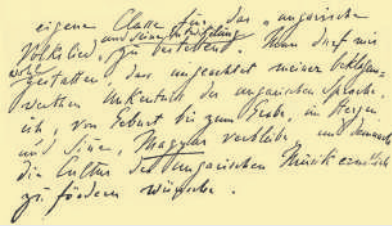 eigene Classe für das „ungarische
Volkslied, und seine Entwicklung zu bestehend. Man darf mir
wohl gestatten, das ungeachtet meiner beklagens-
werthen Unkentniss der ungarischen Sprache,
ich, von Geburt bis zum Grabe, im Herzen
und Sinne, Magyar verbleibe und demnach
die Cultur der ungarischen Musik ernstlich
zu fördern wünsche.